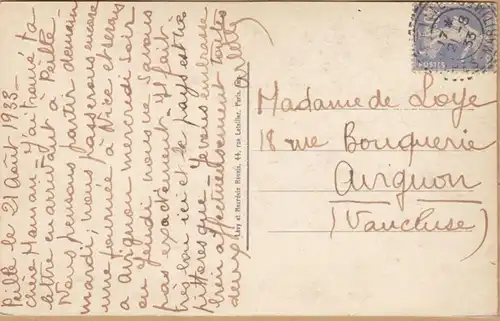 Peille le 21 Août 1933
chère Maman - J'ai trouvé ta
lettre en arrivant à Peille -
Nous pensons partir demain
mardi; nous passerons encore
une journée à Nice et serons
à Avignon mercredi soir
ou jeudi nous ne savons
pas exactement. Il fait
très bon ici et le pays est très
pittoresque - Je vous embrasse
bien affectueusement toutes
deux
Lévy et Neurdein Réunis, 44, rue Letellier, Paris
Madame de Loye
18 rue Bouquerie
Avignon
(Vaucluse)
POSTES